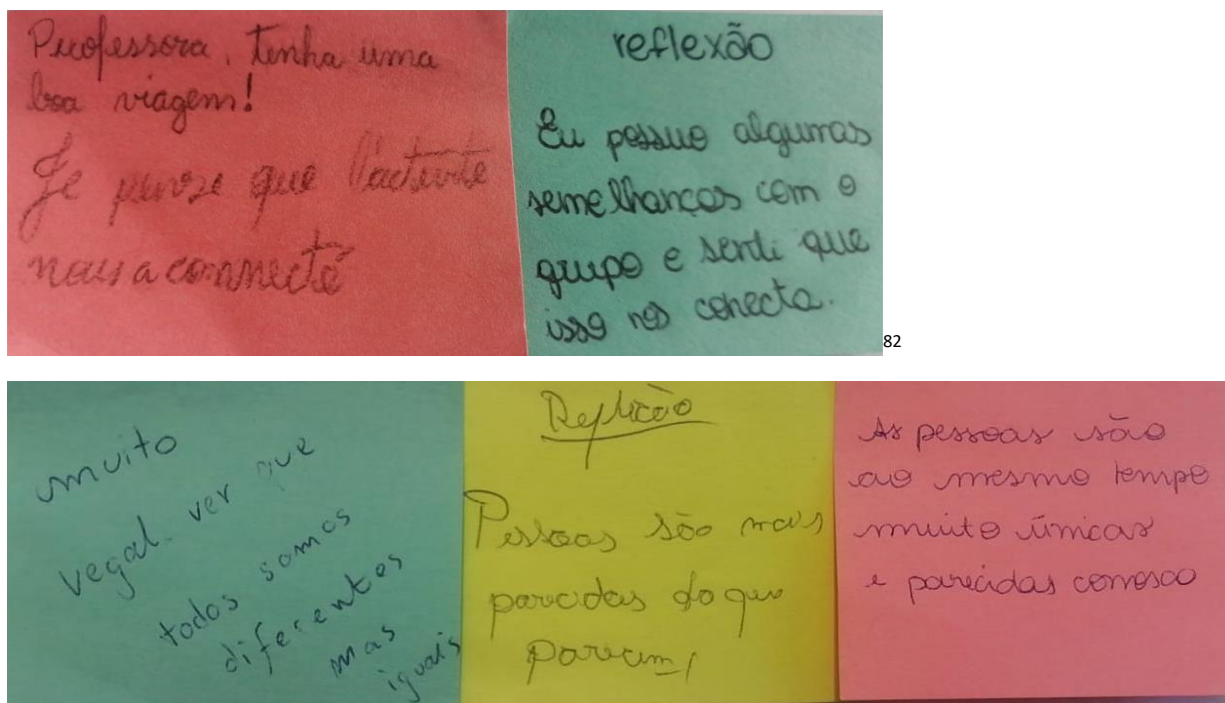 Professora, tenha uma
boa viagem!
Je pense que l'activité
nous a connecté
reflexão
Eu possuo algumas
semelhanças com o
grupo e senti que
isso nos conecta.
82
muito
vegal ver que
todos somos
diferentes
mas
iguais
Reflexão
Pessoas são mais
parecidas do que
parecem!
As pessoas são
ao mesmo tempo
muito únicas
e parecidas conosco